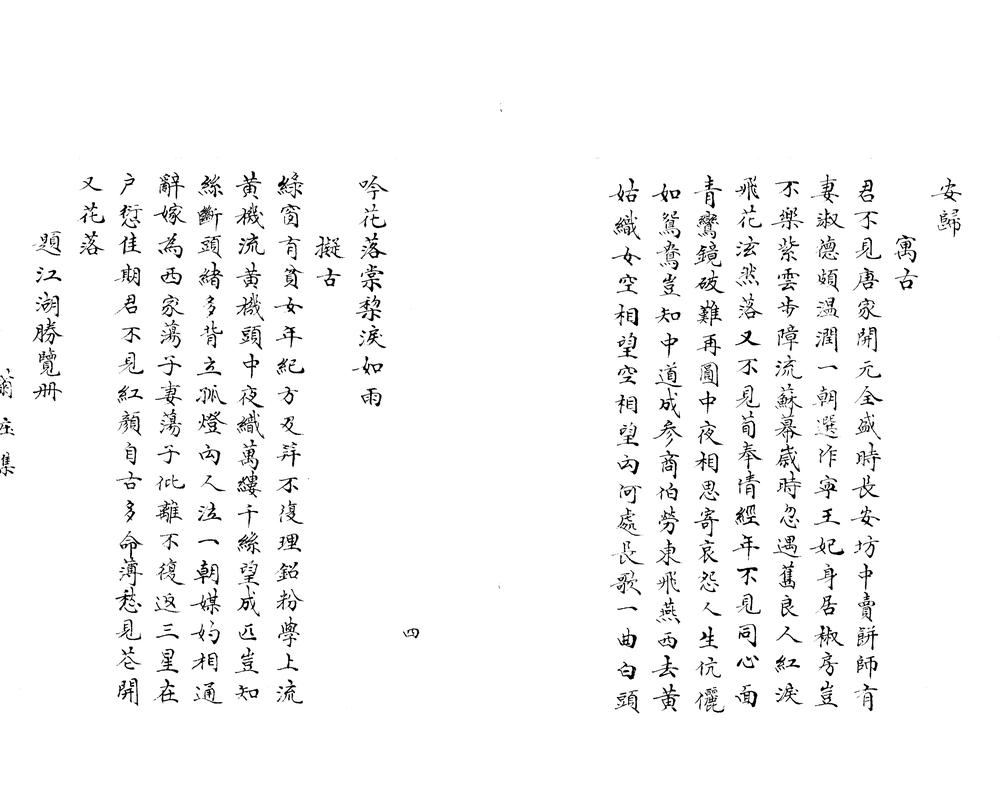 安歸
寓古
君不見唐家開元全盛時長安坊中賣餅師有
妻淑德頗溫潤一朝選作寧王妃身居椒房豈
不樂紫雲步障流蘇幕歲時忽遇舊良人紅淚
飛花泫然落又不見荀奉倩經年不見同心面
青鸞鏡破難再圓中夜相思寄哀怨人生伉儷
如鴛鴦豈知中道成參商伯勞東飛燕西去黃
姑織女空相望空相望向何處長歌一曲白頭
吟花落棠棃淚如雨
擬古
綠窗有貧女年紀方及笄不復理鉛粉學上流
黃機流黃機頭中夜織萬縷千絲望成匹豈知
絲斷頭緒多背立孤燈向人泣一朝媒妁相通
辭嫁為西家蕩子妻蕩子仳離不復返三星在
戶愆佳期君不見紅顏自古多命薄愁見花開
又花落
題江湖勝覽冊
四